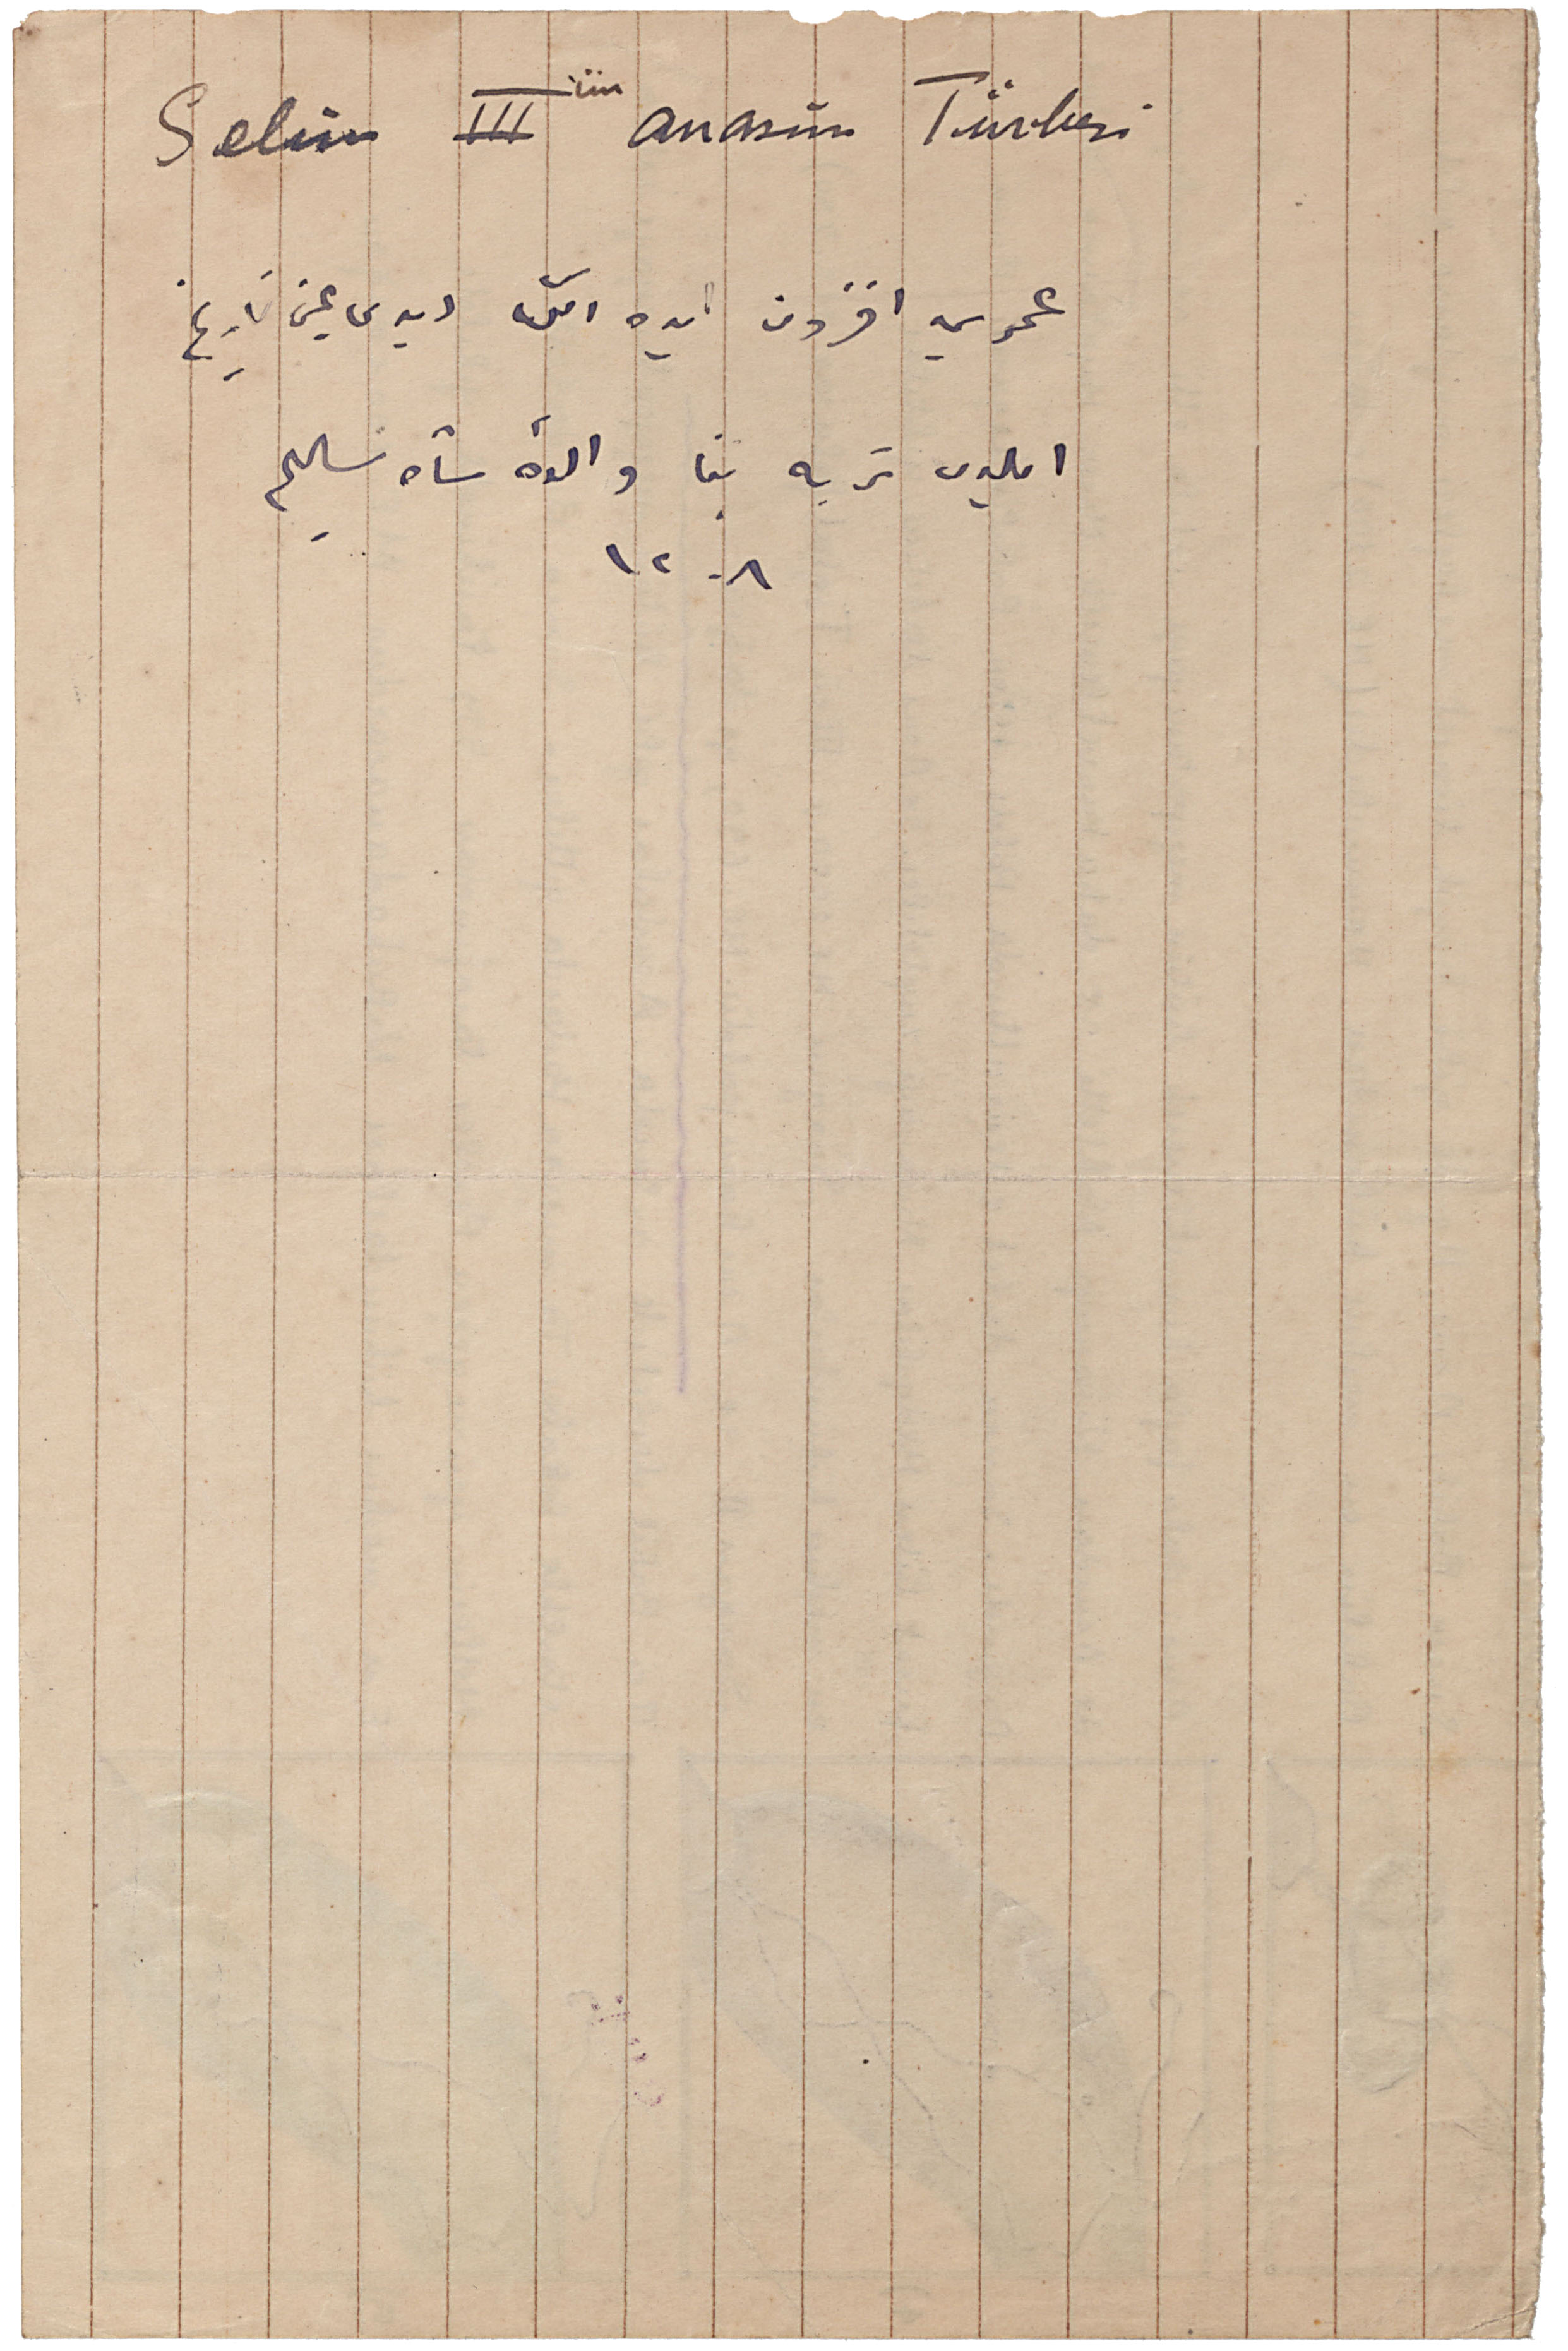 Selim III ün anasının Türbesi
عمرينى افزون ايده الله ديدى عينى تاريخ
ايلدى تربه بنا والدهٔ شاه سليم
١٢٠٨